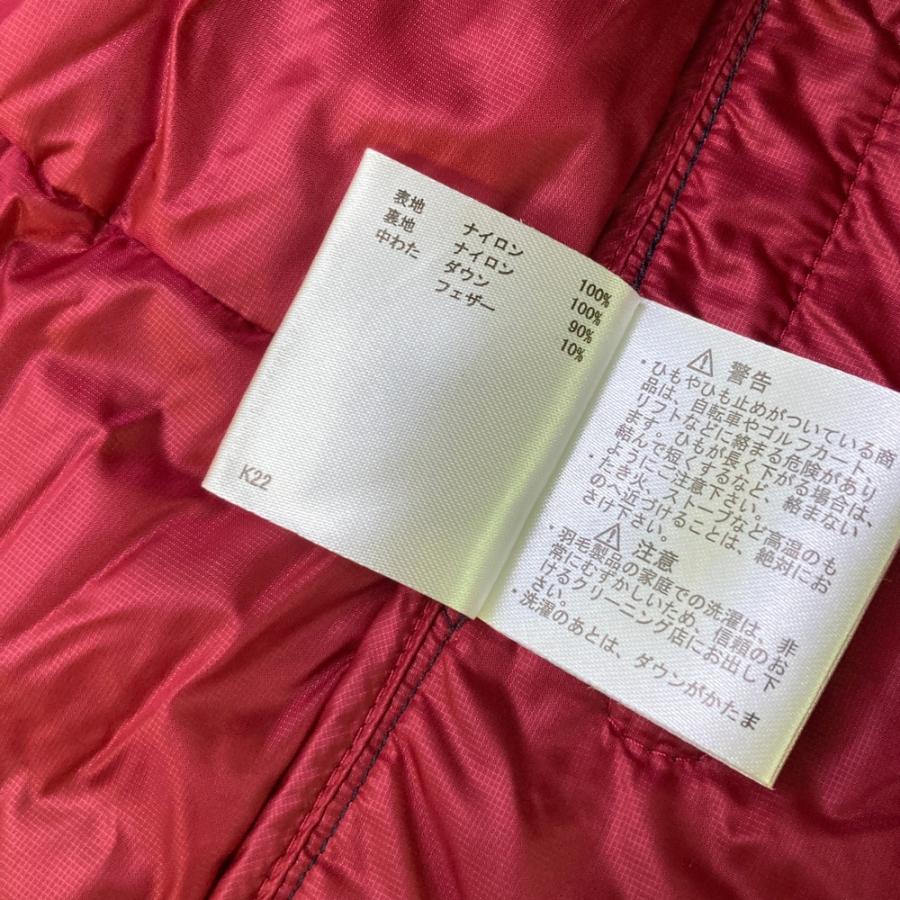 表地 ナイロン 100%
裏地 ナイロン 100%
中わた ダウン 90%
フェザー 10%
K22
⚠ 警告
・ひもやひも止めがついている商
品は、自転車やゴルフカート、
リフトなどに絡まる危険があり
ます。ひもが長く下がる場合は、
結んで短くするなど、絡まない
ようにご注意下さい。
・たき火、ストーブなど高温のも
のへ近づけることは、絶対にお
さけ下さい。
⚠ 注意
・羽毛製品の家庭での洗濯は、非
常にむずかしいため、信頼のお
けるクリーニング店にお出し下
さい。
・洗濯のあとは、ダウンがかたま